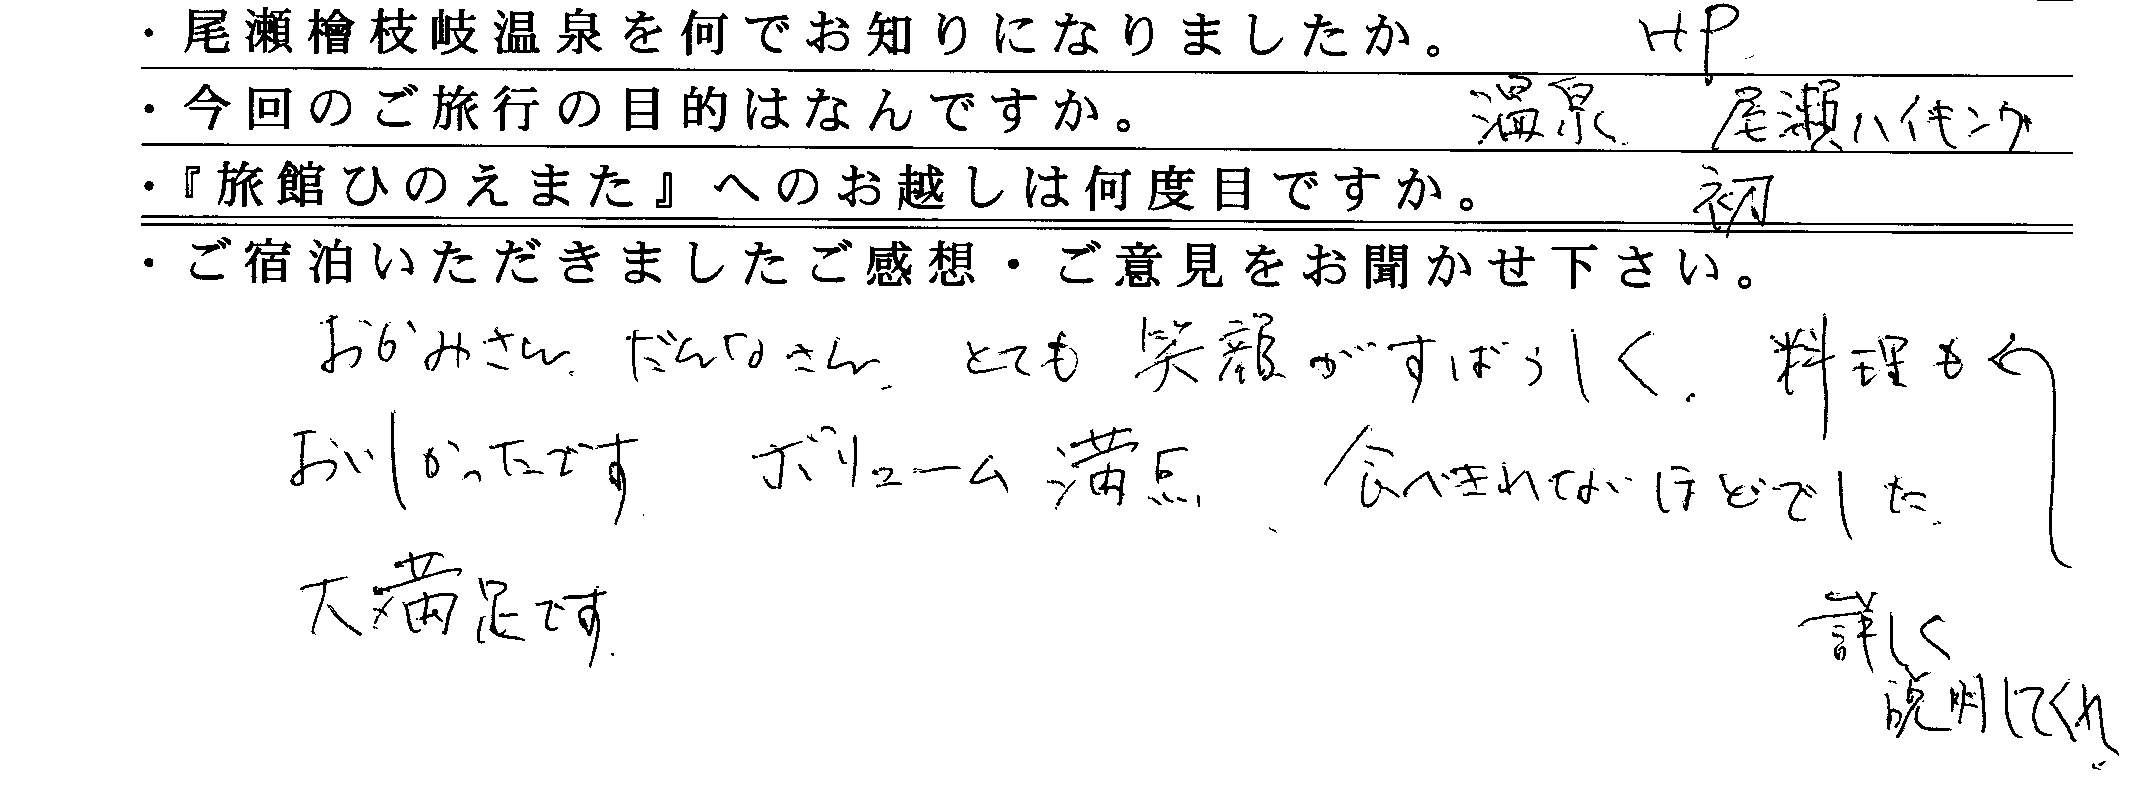 ・尾瀬檜枝岐温泉を何でお知りになりましたか。 HP
・今回のご旅行の目的はなんですか。 温泉 尾瀬ハイキング
・『旅館ひのえまた』へのお越しは何度目ですか。 初
・ご宿泊いただきましたご感想・ご意見をお聞かせ下さい。
おかみさん、だんなさん、とても笑顔がすばらしく、料理も
おいしかったです ボリューム満点、食べきれないほどでした
大満足です
詳しく
説明してくれ